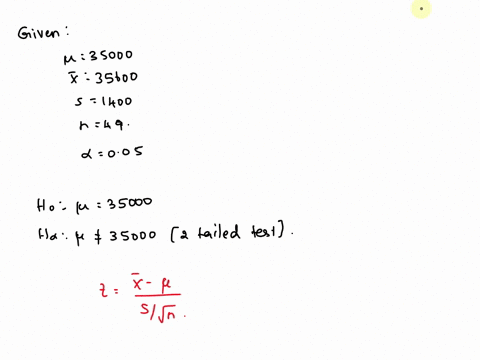 Given:
μ = 35000
x̄ = 35600
s = 1400
n = 49.
α = 0.05
H₀:- μ = 35000
Ha:- μ ≠ 35000 [2 tailed test].
z = x̄ - μ
s/√n.